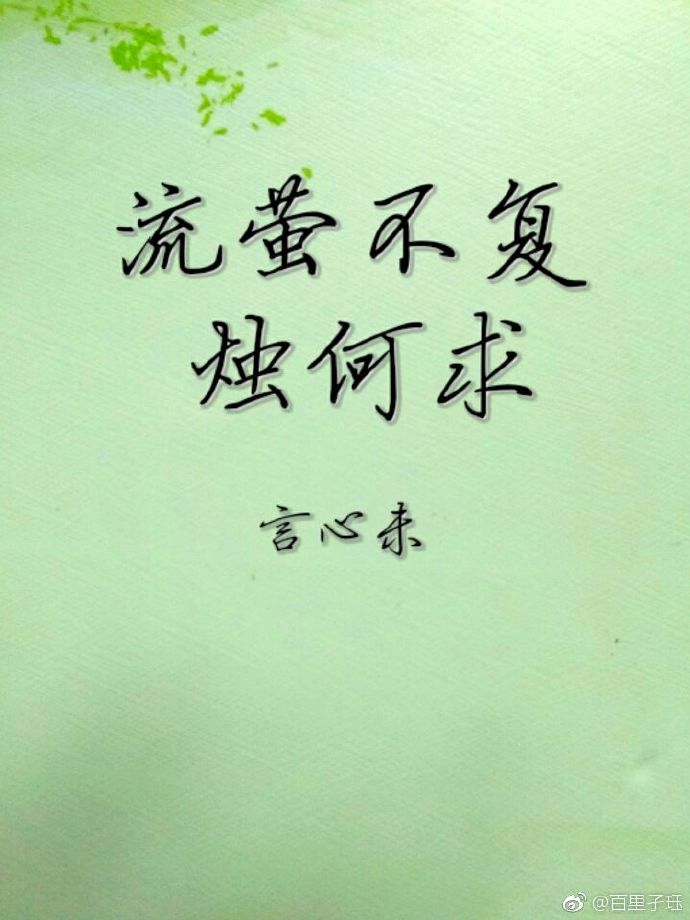 流萤不复
烛何求
言心未
@百里子珏